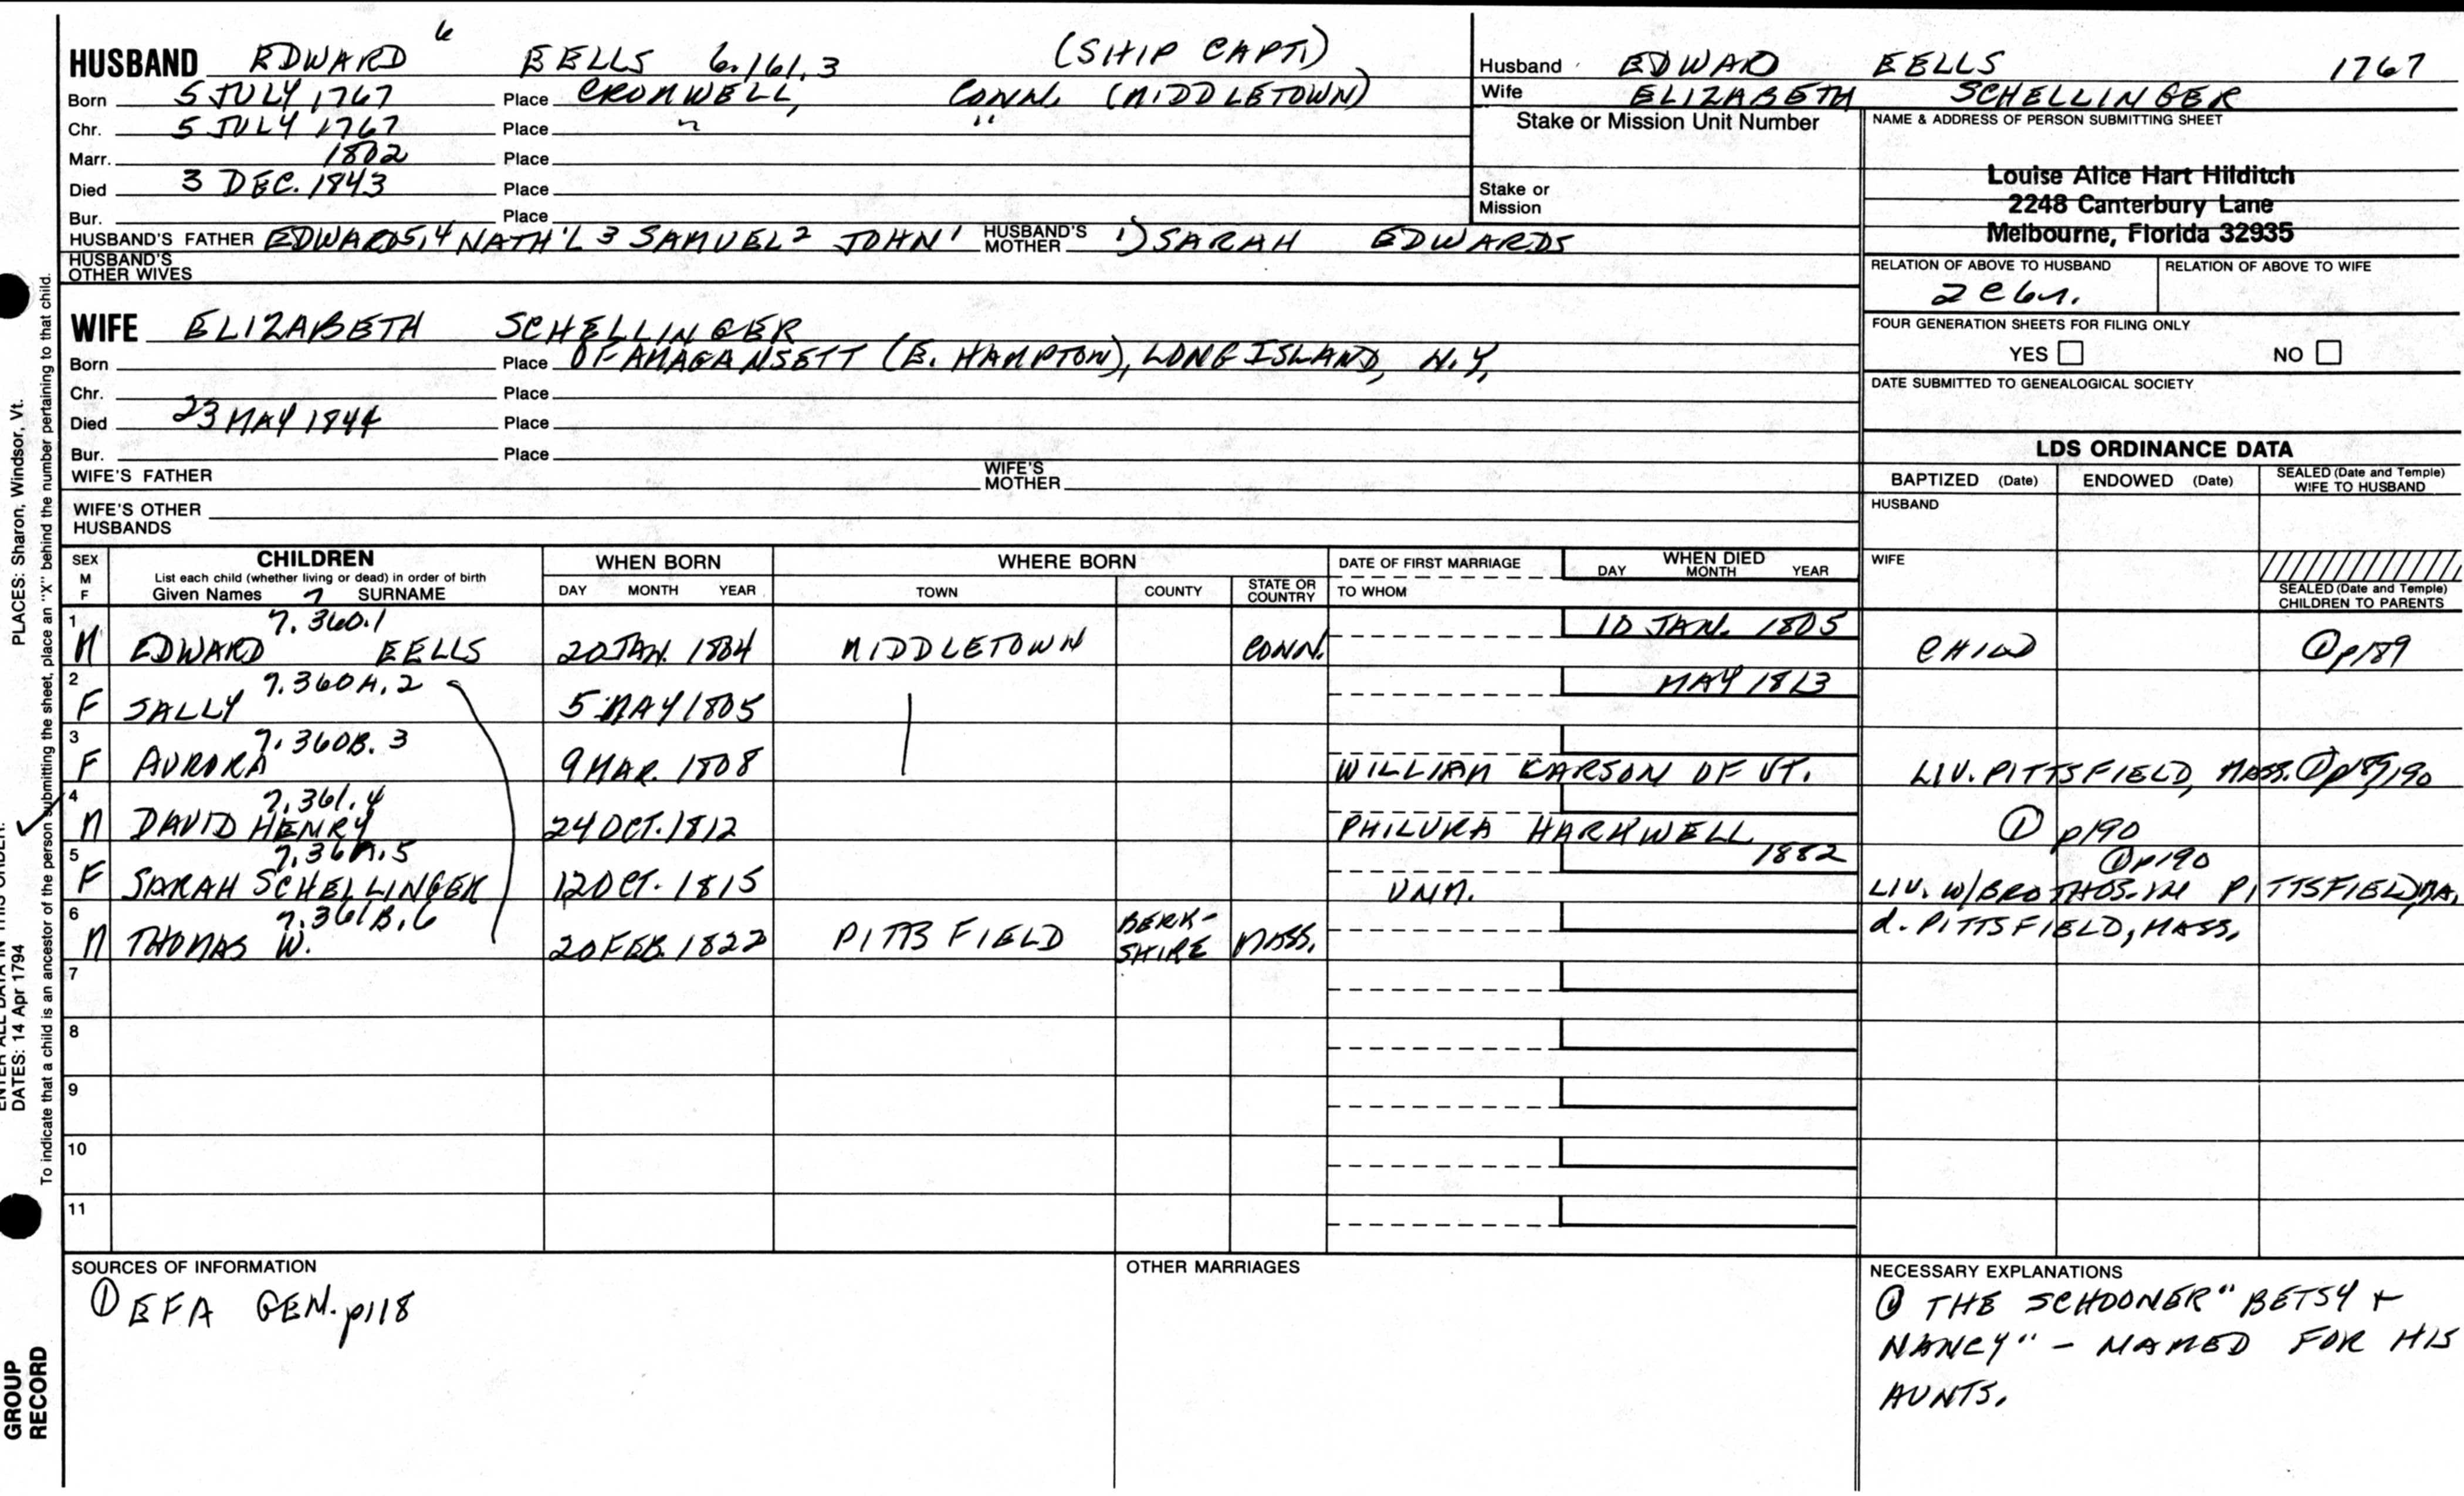 HUSBAND EDWARD 6 EELLS 6.161.3 (SHIP CAPT.)
Born 5 JULY 1767 Place CROMWELL, CONN. (MIDDLETOWN)
Chr. 5 JULY 1767 Place " "
Marr. 1802 Place
Died 3 DEC. 1843 Place
Bur. Place
HUSBAND'S FATHER EDWARD5,4 NATH'L 3 SAMUEL2 JOHN1 HUSBAND'S MOTHER 1) SARAH EDWARDS
HUSBAND'S OTHER WIVES
Husband EDWARD EELLS 1767
Wife ELIZABETH SCHELLINGER
Stake or Mission Unit Number
Stake or Mission
NAME & ADDRESS OF PERSON SUBMITTING SHEET
Louise Alice Hart Hilditch
2248 Canterbury Lane
Melbourne, Florida 32935
RELATION OF ABOVE TO HUSBAND RELATION OF ABOVE TO WIFE
FOUR GENERATION SHEETS FOR FILING ONLY
YES NO
DATE SUBMITTED TO GENEALOGICAL SOCIETY
WIFE ELIZABETH SCHELLINGER
Born Place OF AMAGANSETT (E. HAMPTON), LONG ISLAND, N.Y.
Chr. Place
Died 23 MAY 1844 Place
Bur. Place
WIFE'S FATHER WIFE'S MOTHER
WIFE'S OTHER HUSBANDS
LDS ORDINANCE DATA
BAPTIZED (Date) ENDOWED (Date) SEALED (Date and Temple) WIFE TO HUSBAND
HUSBAND
WIFE
SEALED (Date and Temple) CHILDREN TO PARENTS
SEX M F CHILDREN List each child (whether living or dead) in order of birth Given Names 7 SURNAME
WHEN BORN DAY MONTH YEAR
WHERE BORN TOWN COUNTY STATE OR COUNTRY
DATE OF FIRST MARRIAGE TO WHOM
WHEN DIED DAY MONTH YEAR
1 M 7.360.1 EDWARD EELLS 20 JAN. 1804 MIDDLETOWN CONN. 10 JAN. 1805 CHILD ① p189
2 F 7.360A.2 SALLY 5 MAY 1805 MAY 1813
3 F 7.360B.3 AURORA 9 MAR. 1808 WILLIAM KARSON OF VT. LIV. PITTSFIELD, MASS. ① p189,190
4 M 7.361.4 DAVID HENRY 24 OCT. 1812 PHILURA HARKWELL ① p190
5 F 7.361A.5 SARAH SCHELLINGER 12 OCT. 1815 UNM. 1882 ① p190 LIV. W/BRO THOS. IN PITTSFIELD, MA.
6 M 7.361B.6 THOMAS W. 20 FEB. 1822 PITTSFIELD BERKSHIRE MASS. d. PITTSFIELD, MASS.
7
8
9
10
11
SOURCES OF INFORMATION
① EFA GEN. p118
OTHER MARRIAGES
NECESSARY EXPLANATIONS
① THE SCHOONER "BETSY +
NANCY" - NAMED FOR HIS
AUNTS.
PLACES: Sharon, Windsor, Vt.
ENTER ALL DATA IN THIS ORDER:
DATES: 14 Apr 1794
To indicate that a child is an ancestor of the person submitting the sheet, place an "X" behind the number pertaining to that child.
GROUP
RECORD